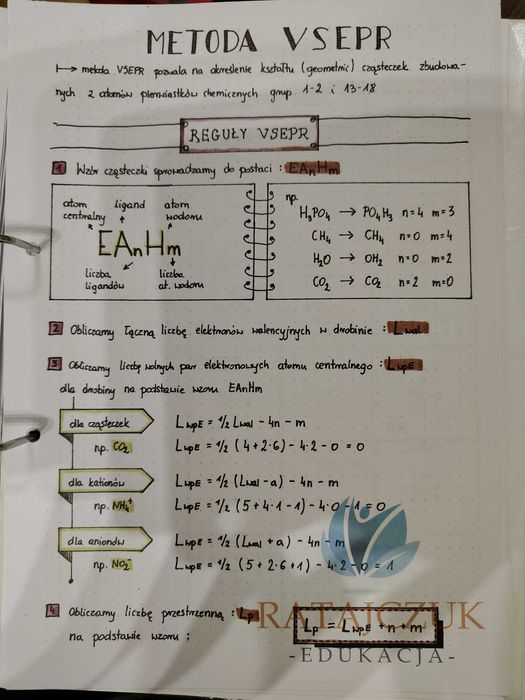 METODA VSEPR
↦ metoda VSEPR pozwala na określenie kształtu (geometrię) cząsteczek zbudowa-
nych z atomów pierwiastków chemicznych grup 1-2 i 13-18
REGUŁY VSEPR
1 Wzór cząsteczki sprowadzamy do postaci : EAnHm
atom centralny
ligand
atom wodoru
EAnHm
liczba ligandów
liczba at. wodoru
np.
H₃PO₄ → PO₄H₃ n=4 m=3
CH₄ → CH₄ n=0 m=4
H₂O → OH₂ n=0 m=2
CO₂ → CO₂ n=2 m=0
2 Obliczamy łączną liczbę elektronów walencyjnych w drobinie : Lwal
3 Obliczamy liczbę wolnych par elektronowych atomu centralnego : LwpE
dla drobiny na podstawie wzoru EAnHm
dla cząsteczek LwpE = 1/2 Lwal - 4n - m
np. CO₂ LwpE = 1/2 (4+2·6) - 4·2 - 0 = 0
dla kationów LwpE = 1/2 (Lwal - a) - 4n - m
np. NH₄⁺ LwpE = 1/2 (5+4·1-1) - 4·0 - 1 = 0
dla anionów LwpE = 1/2 (Lwal + a) - 4n - m
np. NO₂⁻ LwpE = 1/2 (5+2·6+1) - 4·2 - 0 = 1
4 Obliczamy liczbę przestrzenną : Lp
na podstawie wzoru :
Lp = LwpE + n + m
RATAJCZUK
-EDUKACJA-